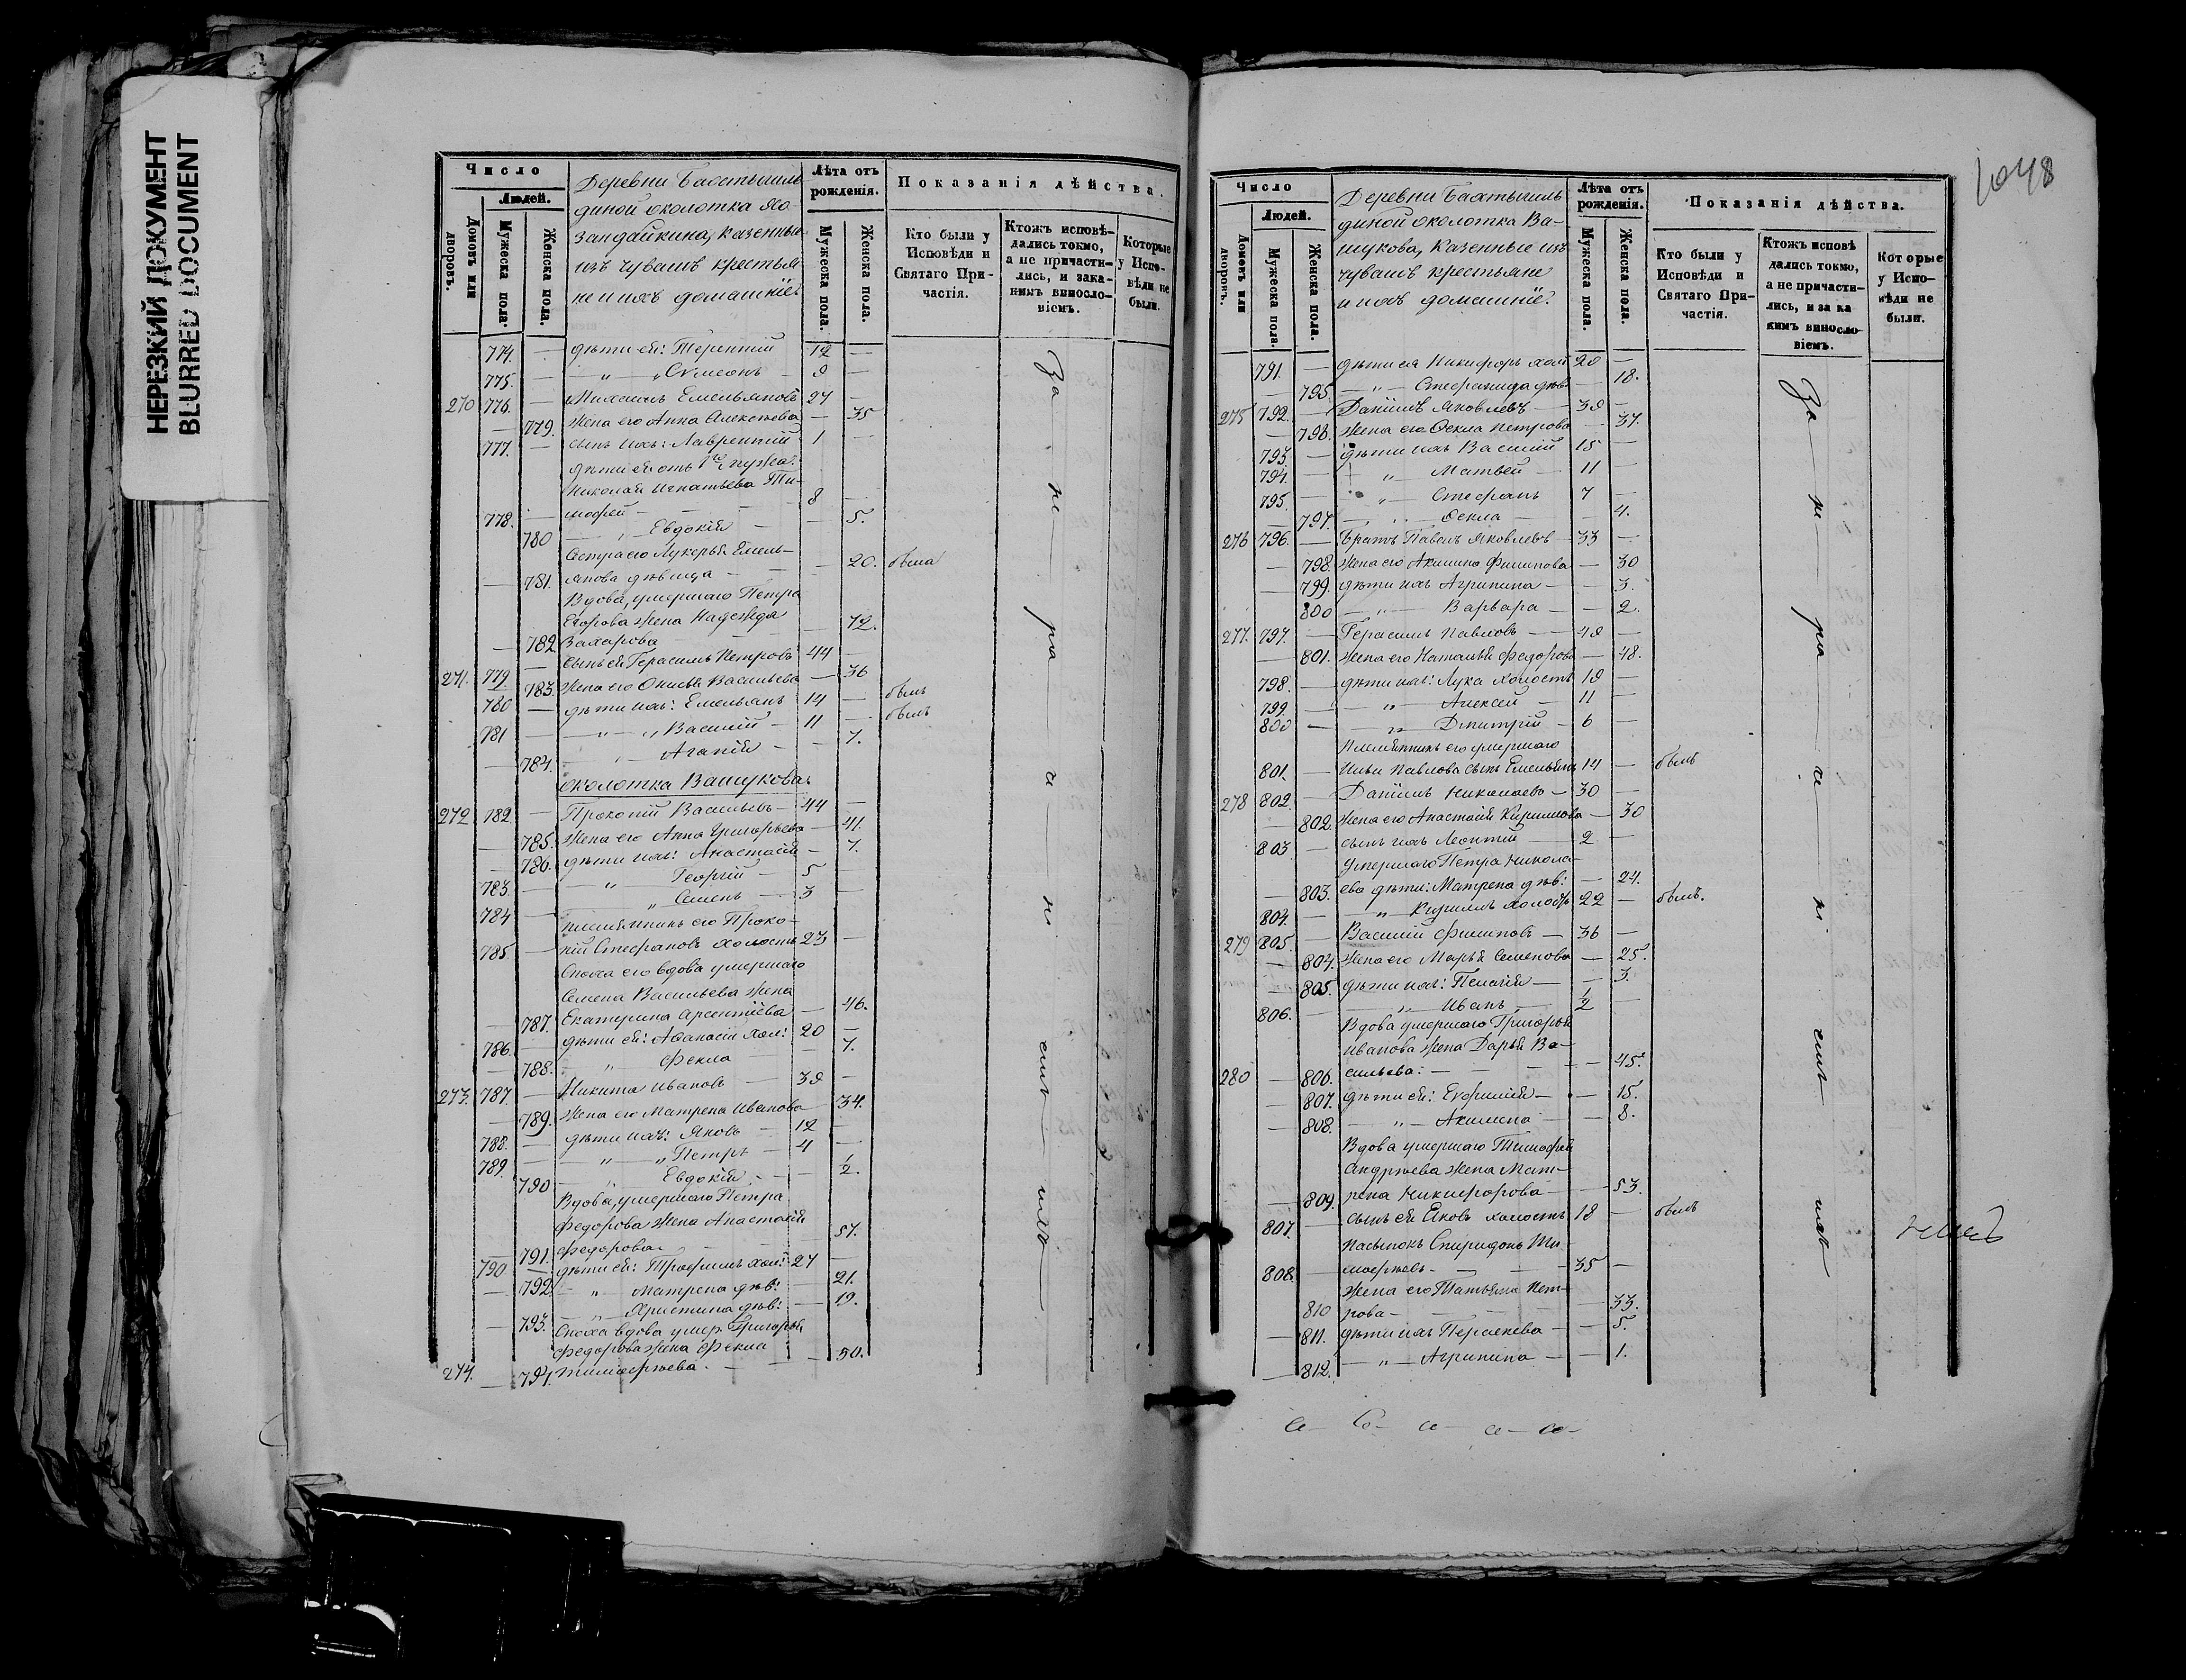 НЕРЕЗКИЙ ДОКУМЕНТ
BLURRED DOCUMENT
Число
Людей.
Домовъ или дворовъ.
Мужеска пола.
Женска пола.
Деревни Бахтыгиль
диной околотка
зандайкина, казенные
изъ чувашъ крестья
не и ихъ домашніе.
Лѣта отъ рожденія.
Мужеска пола.
Женска пола.
Показанія дѣйства.
Кто были у Исповѣди и Святаго Причастія.
Ктожъ исповѣдались токмо, а не причастились, и закакимъ винословіемъ.
Которые у Исповѣди не были.
774. — дѣти ей: Терентій 12 —
775. — „ „ Сѵмеонъ 9 —
270 776. — Михаилъ Емельяновъ 27 —
— 779. Жена его Анна Алексѣева — 35
777. — сынъ ихъ: Лаврентій 1 —
дѣти ей отъ 1го мужа
Николая Игнатьева Ти-
778. — мофей — 8 —
780 — „ Евдокія — 5.
Сестра его Лукерья Емель-
— 781. янова дѣвица — 20. была
Вдова, умершаго Петра
Егорова жена Надежда
— 782 Захарова — 72.
271. 779 — сынъ ей Герасимъ Петровъ 44 —
783 Жена его Онисья Васильева — 36
780 — дѣти ихъ: Емельянъ 14 — былъ
781 — „ „ Василій 11 — былъ
— 784. „ Агапія — 7.
околотка Вашукова.
272 782. — Прокопій Васильевъ 44 —
— 785. Жена его Анна Григорьева — 41.
— 786. дѣти ихъ: Анастасія — 7.
783. — „ Георгій 5 —
784 — „ Семенъ 3 —
племянникъ его Проко-
785 — пій Стефановъ холостъ 23 —
Сноха его вдова умершаго
Семена Васильева жена
— 787. Екатерина Арсентіева — 46.
786. — дѣти ей: Афанасій хол: 20 —
— 788. „ Фекла — 7.
273. 787. — Никита Ивановъ 39 —
— 789. Жена его Матрена Иванова — 34.
788. — дѣти ихъ: Яковъ 12 —
789. — „ „ Петръ 4 —
790 „ Евдокія — 1/2.
Вдова, умершаго Петра
Федорова жена Анастасія
— 791. Федорова — 57.
790 — дѣти ей: Трофимъ хол: 27
— 792. „ Матрена дѣв: — 21.
— 793. „ Христина дѣв: — 19.
Сноха вдова умер. Григорья
Федорова жена Фекла
274. — 794. Тимофѣева. — 50.
За не ра чи ні емъ имъ
1048
Число
Людей.
Домовъ или дворовъ.
Мужеска пола.
Женска пола.
Деревни Бахтыгиль
диной околотка Ва-
шукова, казенные изъ
чувашъ крестьяне
и ихъ домашніе.
Лѣта отъ рожденія.
Мужеска пола.
Женска пола.
Показанія дѣйства.
Кто были у Исповѣди и Святаго Причастія.
Ктожъ исповѣдались токмо, а не причастились, и за какимъ винословіемъ.
Которые у Исповѣди не были.
791. — дѣти ея Никифоръ хол 20 —
— 795. „ Стефанида дѣв — 18.
275 792. — Даніилъ Яковлевъ 39 —
— 796. Жена его Фекла Петрова — 37.
793. — дѣти ихъ Василій 15 —
794. — „ Матвей 11 —
795. — „ Стефанъ 7 —
— 797. „ Фекла — 4.
276 796. — Братъ Павелъ Яковлевъ 33 —
— 798. Жена его Акилина Филипова — 30
799. дѣти ихъ Агрипина — 3.
800 „ Варвара — 2.
277. 797. — Герасимъ Павловъ 49 —
— 801. Жена его Наталья Федорова — 48.
798. — дѣти ихъ: Лука холостъ 19 —
799. — „ Алексей 11 —
800 — „ Дмитрій 6 —
Племянникъ его умершаго
801. — Ильи Павлова сынъ Емельянъ 14 — былъ
278 802. — Даніилъ Николаевъ 30 —
— 802. Жена его Анастасія Кирилова — 30
803 — сынъ ихъ Леонтій 2 —
Умершаго Петра Никола-
— 803. ева дѣти: Матрена дѣв: — 24.
804. — „ Кириллъ холостъ 22 — былъ.
279 805. — Василій Филиповъ 36 —
— 804. Жена его Марья Семенова — 25.
— 805. дѣти ихъ: Пелагія — 3.
806. — „ Иванъ 1/2 —
Вдова умершаго Григорья
Иванова жена Дарья Ва-
280 — 806. сильева: — 45.
— 807. дѣти ей: Евфимія — 15.
— 808. „ Акилина — 8.
Вдова умершаго Тимофея
Андрѣева жена Мат-
— 809. рена Никифорова — 53.
807. — сынъ ей Яковъ холостъ 18 — былъ
Пасынокъ Спиридонъ Ти-
808. — мофѣевъ 35 —
Жена его Татьяна Пет-
810 рова — 33.
— 811. дѣти ихъ Параскева — 5.
— 812. „ Агрипина — 1.
За не ра чи ні емъ имъ